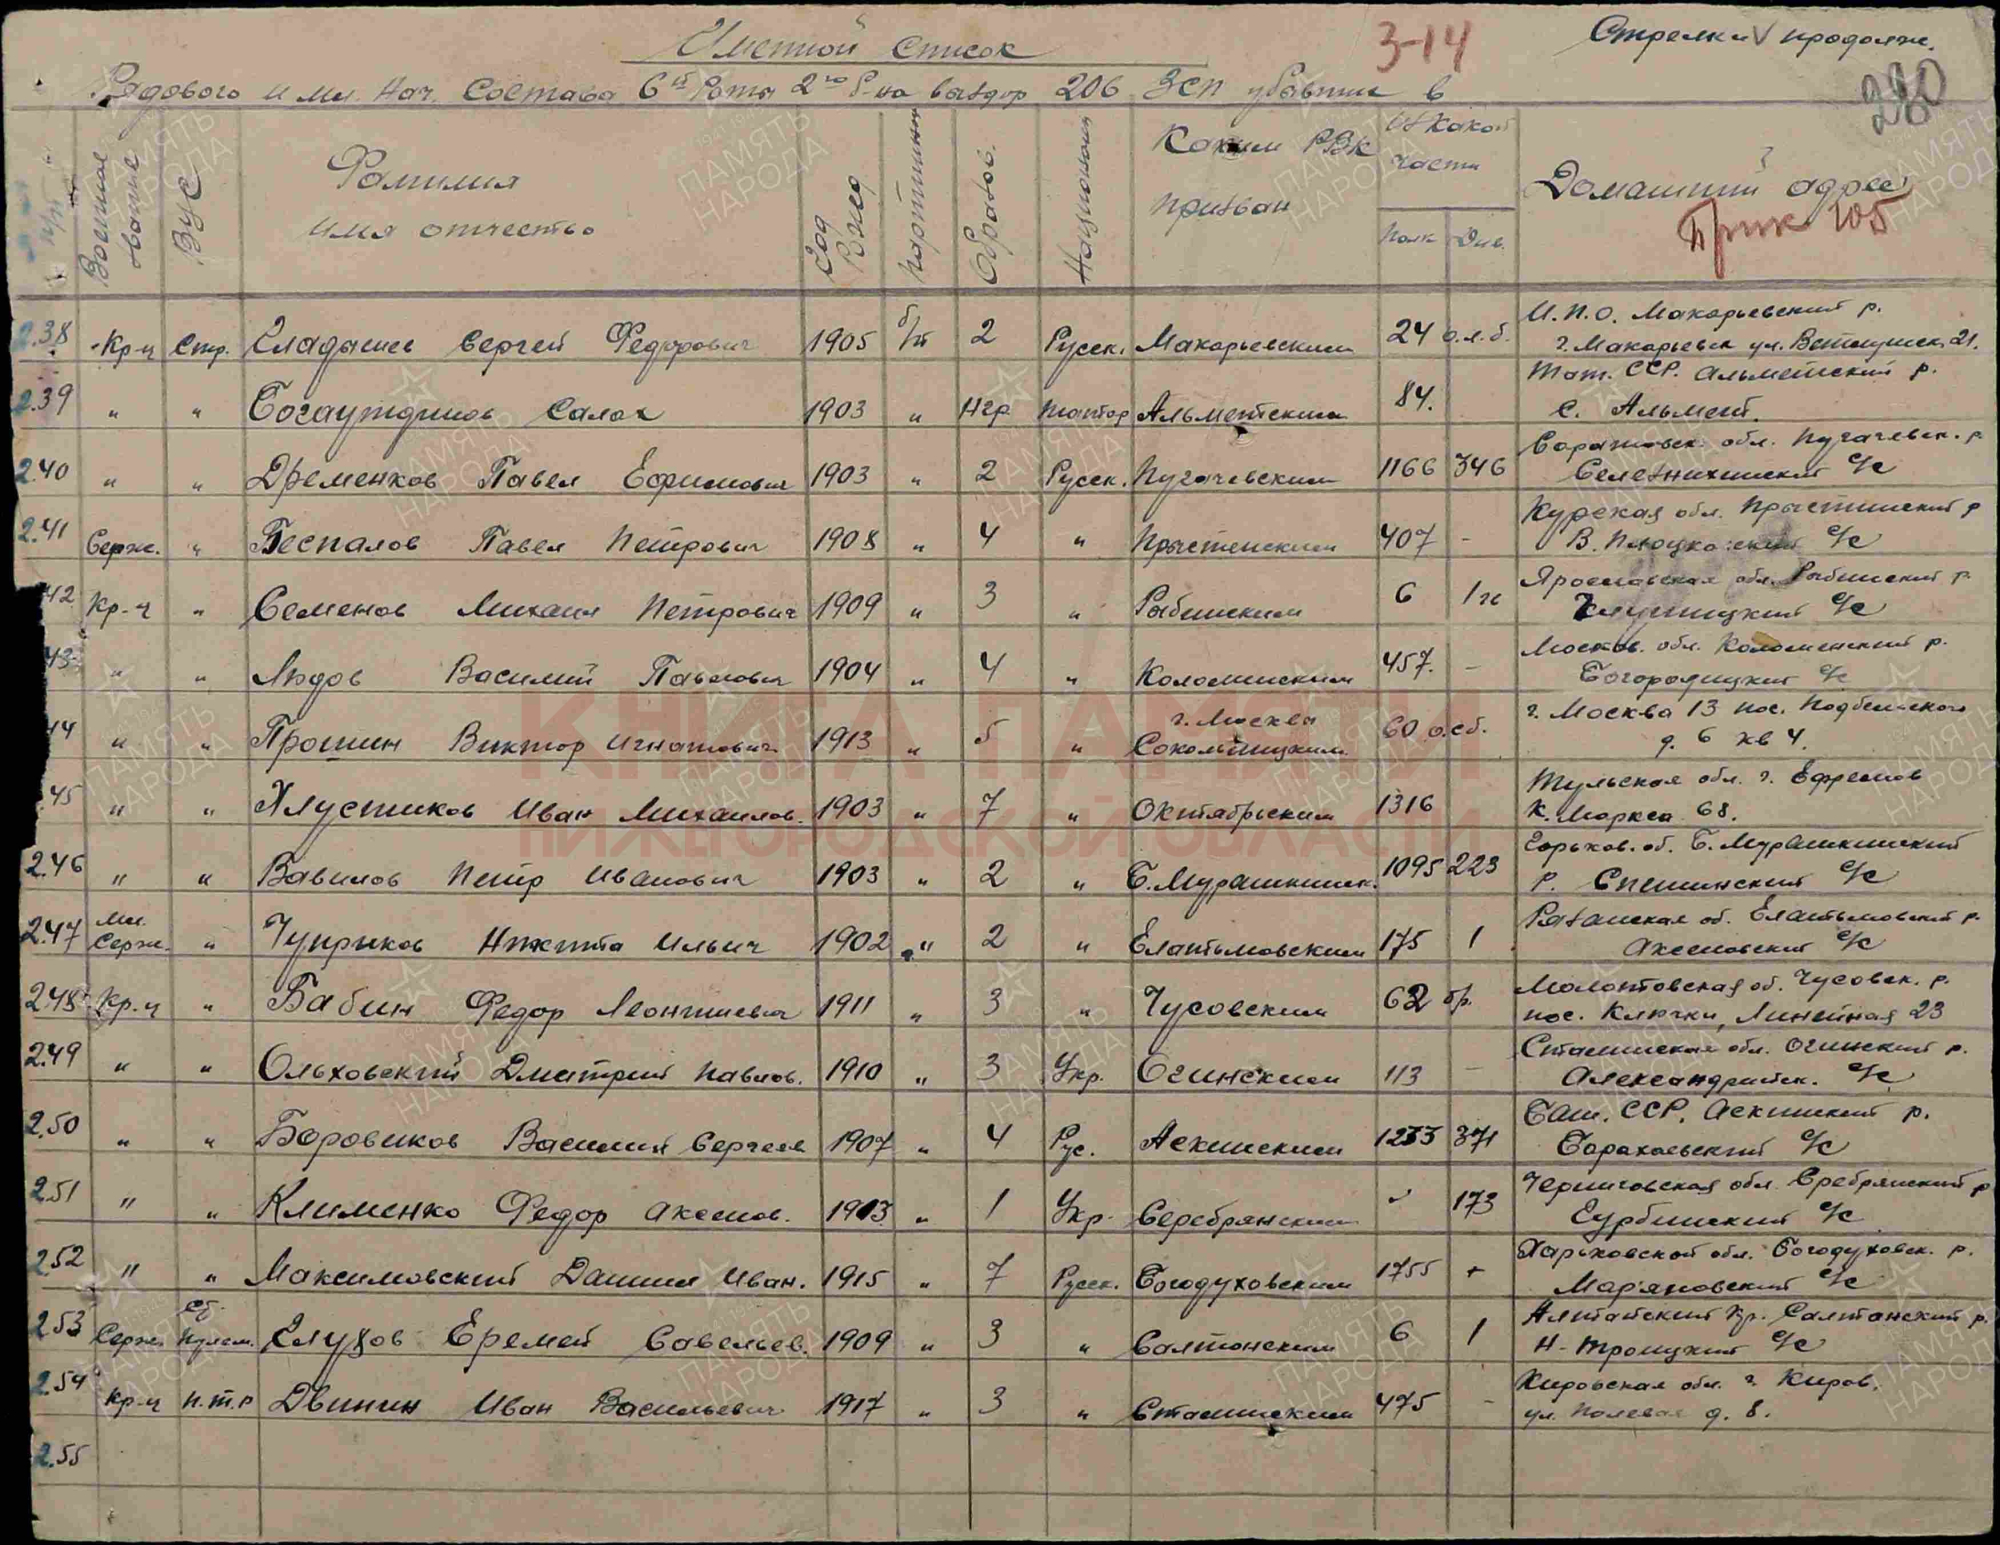 Именной список
3-14
Стрелки V продолж.
280
Рядового и мл. нач. состава 6й роты 2го б-на выздор 206 ЗСП убывших в
Военное звание
ВУС
Фамилия
имя отчество
Год Рожд
партийность
Образов.
Национальн
Каким РВК
призван
Из какой
части
Полк Див.
Домашний адрес
Прик 205
2.38 Кр-ц Стр. Гладышев Сергей Федорович 1905 б/п 2 Русск. Макарьевским 24 о.л.б. И.П.О. Макарьевский р.
г. Макарьевск ул. Ветлужск. 21.
2.39 " " Богаутдинов Салах 1903 " Нгр татар Альметским 84. Тат. ССР. Альметский р.
с. Альмет.
2.40 " " Дременков Павел Ефимович 1903 " 2 Русск. Пугачевским 1166 346 Саратовск. обл. Пугачевск. р.
Селезнихинский с/с
2.41 Серж. " Беспалов Павел Петрович 1908 " 4 " Прыстенским 407 - Курская обл. Прыстинский р
В. с/с
42 Кр-ц " Семенов Михаил Петрович 1909 " 3 " Рыбинским 6 1 гв Ярославская обл. Рыбинский р.
с/с
43 " " Людов Василий Павлович 1904 " 4 " Коломенским 457. - Москов. обл. Коломенский р.
Богородицкий с/с
44 " " Прошин Виктор Игнатович 1913 " 5 " г. Москвы
Сокольницким 60 о.сб. г. Москва 13 пос. Подбельского
д. 6 кв 4.
45 " " Хлустиков Иван Михайлов. 1903 " 7 " Октябрьским 1316 Тульская обл. г. Ефремов
К. Маркса 68.
2.46 " " Вавилов Петр Иванович 1903 " 2 " Б. Мурашкинск. 1095 223 Горьков. об. Б. Мурашкинский
р. Спешинский с/с
2.47 Мл. Серж. " Чуприков Никита Ильич 1902 " 2 " Елатьмовским 175 1 Рязанская об. Елатьмовский р.
Аксеновский с/с
248 Кр.ц " Бабин Федор Леонтиевич 1911 " 3 " Чусовским 62 бр. Молотовская об. Чусовск. р.
пос. Ключки, Линейная 23
2.49 " " Ольховский Дмитрий Павлов. 1910 " 3 Укр. Огинским 113 - Сталинская обл. Огинский р.
Александрийск. с/с
2.50 " " Боровиков Василий Сергеев 1907 " 4 Рус. Аскинским 1233 371 Баш. ССР. Аскинский р.
с/с
2.51 " " Клименко Федор Аксенов. 1913 " 1 Укр. Серебрянским " 173 Черниговская обл. Сребрянский р
Гурбинский с/с
2.52 " " Максимовский Даниил Иван. 1915 " 7 Русск. Богодуховским 1755 + Харьковской обл. Богодуховск. р.
Марьяновский с/с
2.53 Серж. Ст. Пулем. Глузов Еремей Савельев. 1909 " 3 " Салтонским 6 1 Алтайский Кр. Салтанский р.
Н-Троицкий с/с
2.54 Кр-ц п.т.р Двинин Иван Васильевич 1917 " 3 " Сталинским 475 - Кировская обл. г. Киров.
ул. Полевая д. 8.
2.55
КНИГА ПАМЯТИ
НИЖЕГОРОДСКОЙ ОБЛАСТИ
ПАМЯТЬ НАРОДА